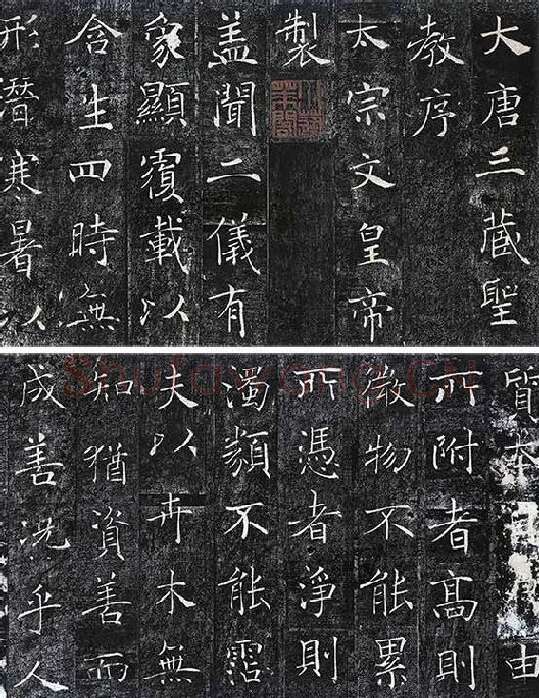 大唐三藏聖
教序
太宗文皇帝
製
盖聞二儀有
象顯覆載以
含生四時無
形潛寒暑以
質本由
所附者髙則
微物不能累
所憑者淨則
濁類不能霑
夫以卉木無
知猶資善而
成善况乎人